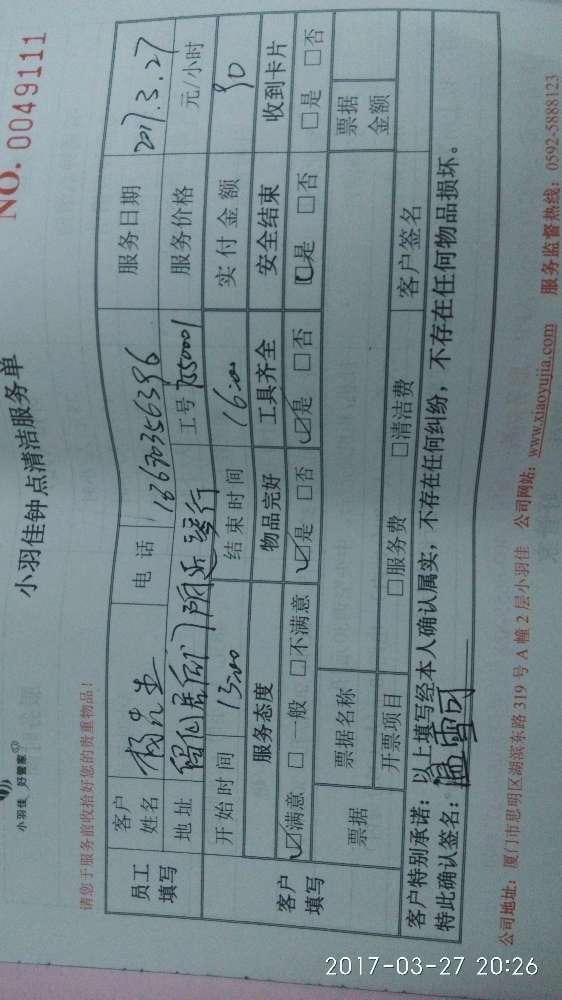 小羽佳 好管家
小羽佳钟点清洁服务单
NO. 0049111
请您于服务前收拾好您的贵重物品!
员工填写 客户姓名 杨先生 电话 服务日期 2017.3.27
地址 工号 服务价格 元/小时
开始时间 13:00 结束时间 16:00 实付金额 90
客户填写 服务态度 物品完好 工具齐全 安全结束 收到卡片
☑满意 □一般 □不满意 ☑是 □否 ☑是 □否 ☑是 □否 □是 □否
票据 票据名称 票据金额
开票项目 □服务费 □清洁费 客户签名
客户特别承诺:以上填写经本人确认属实,不存在任何纠纷,不存在任何物品损坏。
特此确认签名:温雪可
公司地址:厦门市思明区湖滨东路 319 号 A 幢 2 层小羽佳 公司网站:www.xiaoyujia.com 服务监督热线:0592-5888123
2017-03-27 20:26